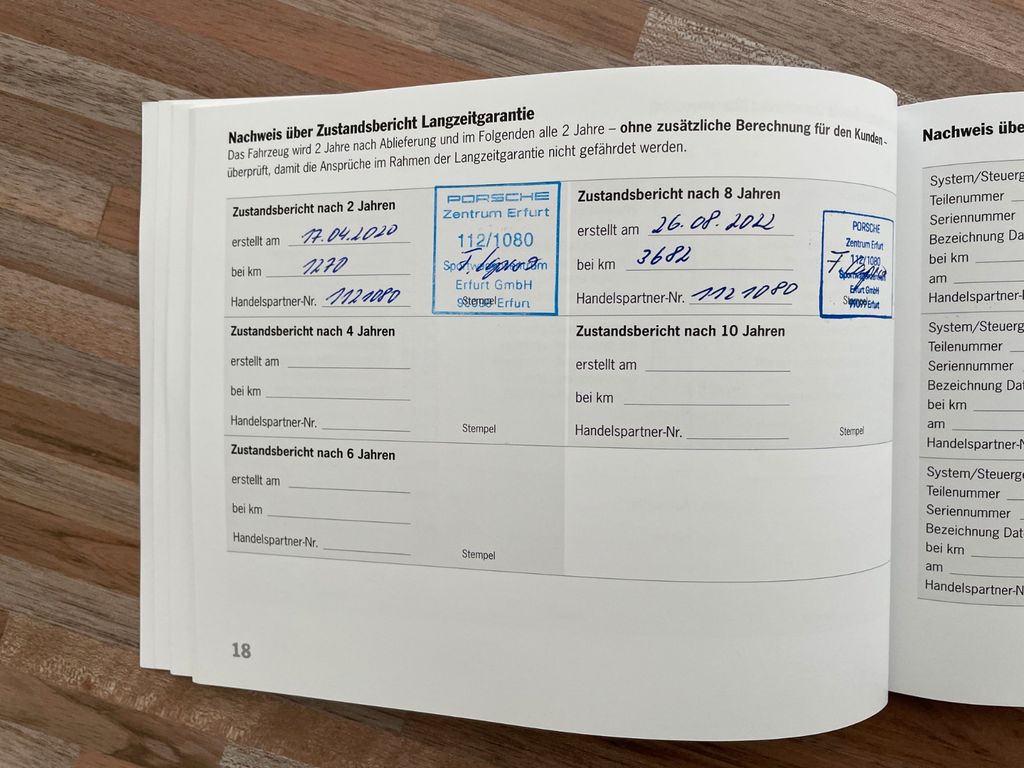 Nachweis über Zustandsbericht Langzeitgarantie
Das Fahrzeug wird 2 Jahre nach Ablieferung und im Folgenden alle 2 Jahre – ohne zusätzliche Berechnung für den Kunden –
überprüft, damit die Ansprüche im Rahmen der Langzeitgarantie nicht gefährdet werden.
Zustandsbericht nach 2 Jahren
erstellt am 17.04.2020
bei km 1270
Handelspartner-Nr. 1121080
PORSCHE
Zentrum Erfurt
112/1080
Erfurt GmbH
Erfurt
Stempel
Zustandsbericht nach 8 Jahren
erstellt am 26.08.2022
bei km 3682
Handelspartner-Nr. 1121080
PORSCHE
Zentrum Erfurt
112/1080
Erfurt GmbH
99099 Erfurt
Stempel
Zustandsbericht nach 4 Jahren
erstellt am
bei km
Handelspartner-Nr.
Stempel
Zustandsbericht nach 10 Jahren
erstellt am
bei km
Handelspartner-Nr.
Stempel
Zustandsbericht nach 6 Jahren
erstellt am
bei km
Handelspartner-Nr.
Stempel
18
Nachweis übe
System/Steuerg
Teilenummer
Seriennummer
Bezeichnung Da
bei km
am
Handelspartner-
System/Steuerg
Teilenummer
Seriennummer
Bezeichnung Dat
bei km
am
Handelspartner-N
System/Steuerge
Teilenummer
Seriennummer
Bezeichnung Dat
bei km
am
Handelspartner-N